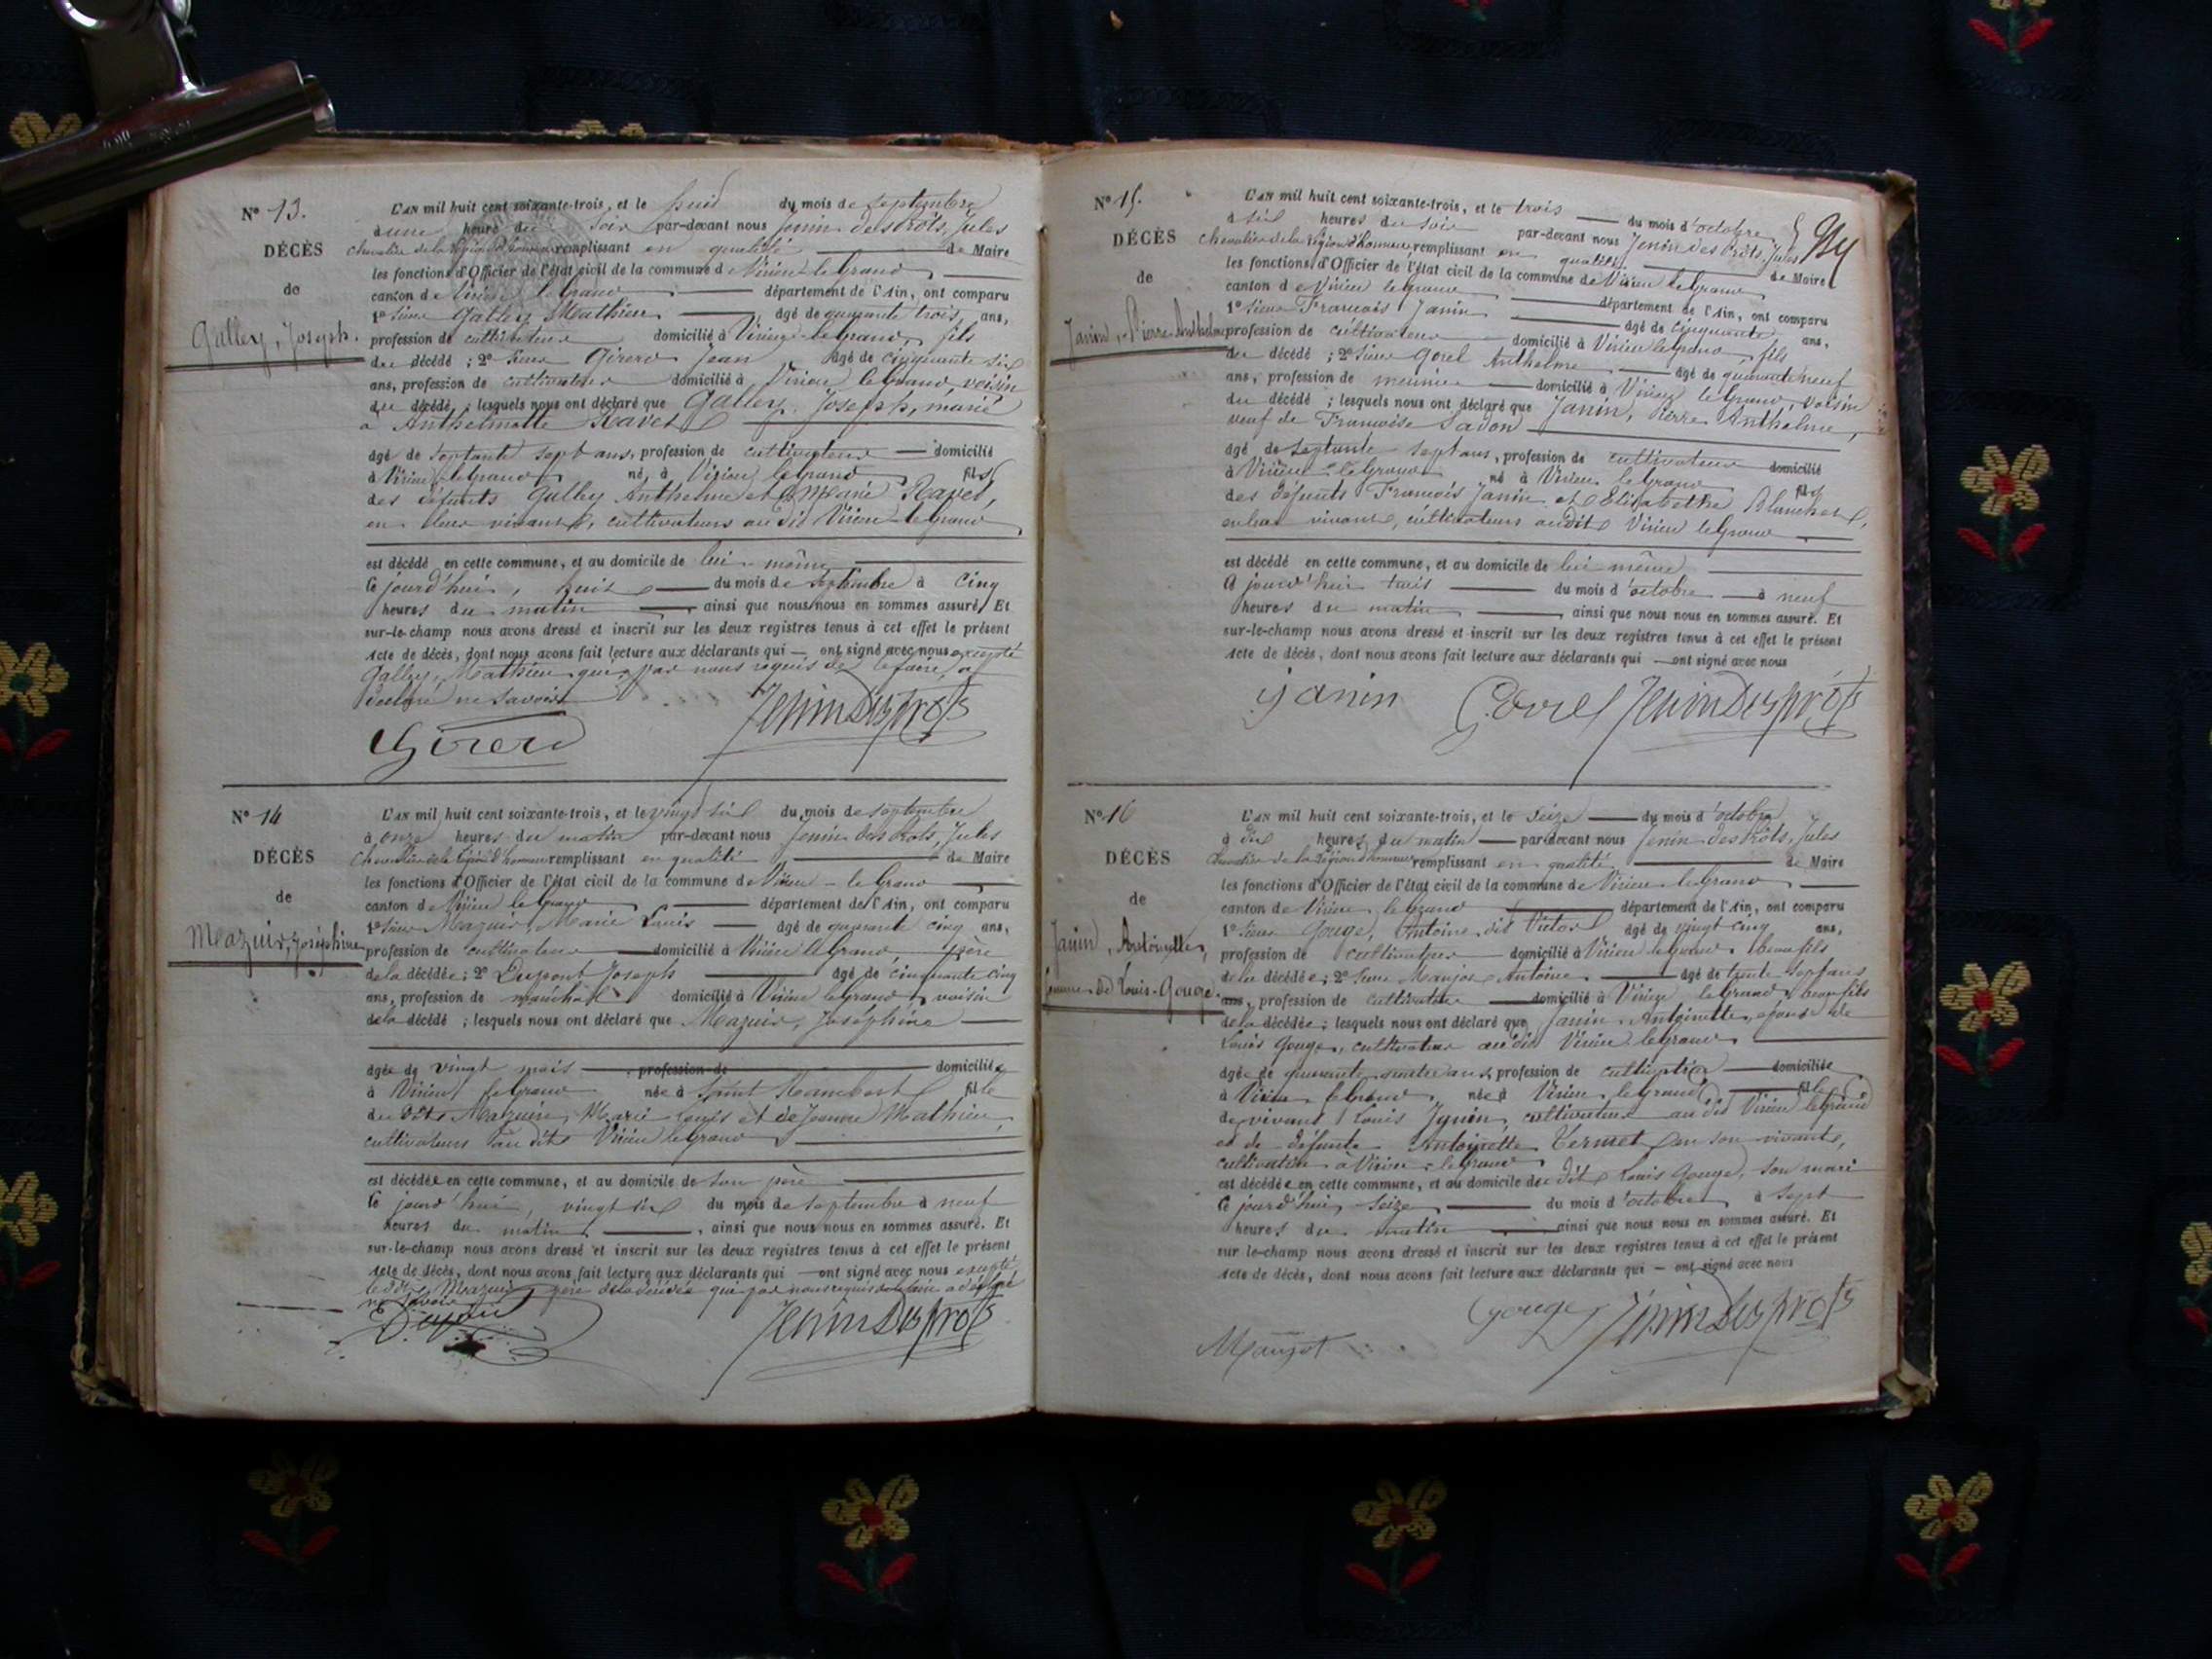 N° 13.
DÉCÈS
de
Galley, Joseph.
L'AN mil huit cent soixante-trois, et le huit du mois de septembre
à une heure du soir par-devant nous Jenin Desprôts, Jules
chevalier de la légion d'honneur remplissant en qualité de Maire
les fonctions d'Officier de l'état civil de la commune de Virieu-le-Grand
canton de Virieu le Grand département de l'Ain, ont comparu
1° sieur Galley Mathieu âgé de quarante trois ans,
profession de cultivateur domicilié à Virieu-le-Grand, fils
du décédé ; 2° sieur Girerd Jean âgé de cinquante six
ans, profession de cultivateur domicilié à Virieu le Grand voisin
du décédé ; lesquels nous ont déclaré que Galley, Joseph, marié
à Anthelmette Ravet
âgé de septante sept ans, profession de cultivateur domicilié
à Virieu le Grand né à Virieu le Grand fils
des défunts Galley Anthelme et Marie Ravet,
en leur vivant, cultivateurs au dit Virieu-le-Grand
est décédé en cette commune, et au domicile de lui-même
Ce jourd'hui, huit du mois de septembre à cinq
heures du matin ainsi que nous nous en sommes assuré, Et
sur-le-champ nous avons dressé et inscrit sur les deux registres tenus à cet effet le présent
acte de décès, dont nous avons fait lecture aux déclarants qui ont signé avec nous excepté
Galley, Mathieu qui, par nous requis de le faire, a
déclaré ne savoir
Girerd JeninDesprôts
N° 14
DÉCÈS
de
Mazuir, Joséphine
L'AN mil huit cent soixante-trois, et le vingt six du mois de septembre
à onze heures du matin par-devant nous Jenin Desprôts, Jules
chevalier de la légion d'honneur remplissant en qualité de Maire
les fonctions d'Officier de l'état civil de la commune de Virieu-le-Grand
canton de Virieu le Grand département de l'Ain, ont comparu
1° sieur Mazuir, Marie Louis âgé de quarante cinq ans,
profession de cultivateur domicilié à Virieu le Grand père
de la décédée ; 2° Dupont Joseph âgé de cinquante cinq
ans, profession de maréchal domicilié à Virieu le Grand, voisin
de la décédé ; lesquels nous ont déclaré que Mazuir, Joséphine
âgée de vingt mois profession de domiciliée
à Virieu le Grand née à Saint Rambert fille
du dit Mazuir, Marie Louis et de Jeanne Mathieu,
cultivateurs au dit Virieu le Grand
est décédée en cette commune, et au domicile de son père
Ce jourd'hui, vingt six du mois de septembre à neuf
heures du matin, ainsi que nous nous en sommes assuré. Et
sur-le-champ nous avons dressé et inscrit sur les deux registres tenus à cet effet le présent
acte de décès, dont nous avons fait lecture aux déclarants qui ont signé avec nous excepté
le dit Mazuir père de la décédée que par nous requis de le faire a déclaré
ne savoir
JeninDesprôts
N° 15.
DÉCÈS
de
Janin, Pierre Anthelme
L'AN mil huit cent soixante-trois, et le trois du mois d'octobre
à six heures du soir par-devant nous Jenin des Prôts, Jules
chevalier de la légion d'honneur remplissant en qualité de Maire
les fonctions d'Officier de l'état civil de la commune de Virieu le Grand
canton de Virieu le Grand département de l'Ain, ont comparu
1° sieur François Janin âgé de cinquante ans,
profession de cultivateur domicilié à Virieu le Grand, fils
du décédé ; 2° sieur Gorel Anthelme âgé de quarante neuf
ans, profession de meunier domicilié à Virieu le Grand, voisin
du décédé ; lesquels nous ont déclaré que Janin, Pierre Anthelme,
veuf de Françoise Ladon
âgé de septante sept ans, profession de cultivateur domicilié
à Virieu-le-Grand né à Virieu le Grand fils
des défunts François Janin et Elisabethe Blanchet,
en leur vivant, cultivateurs audit Virieu le Grand
est décédé en cette commune, et au domicile de lui même
Ce jourd'hui trois du mois d'octobre à neuf
heures du matin ainsi que nous nous en sommes assuré. Et
sur-le-champ nous avons dressé et inscrit sur les deux registres tenus à cet effet le présent
acte de décès, dont nous avons fait lecture aux déclarants qui ont signé avec nous
janin Gorel JeninDesprôts
N° 16
DÉCÈS
de
Janin, Antoinette,
femme de Louis-Gouge.
L'AN mil huit cent soixante-trois, et le seize du mois d'octobre
à dix heures du matin par-devant nous Jenin Desprôts, Jules
chevalier de la légion d'honneur remplissant en qualité de Maire
les fonctions d'Officier de l'état civil de la commune de Virieu-le-Grand
canton de Virieu le Grand département de l'Ain, ont comparu
1° sieur Gouge, Antoine, dit Victor âgé de vingt cinq ans,
profession de cultivateur domicilié à Virieu le Grand, beau fils
de la décédée ; 2° sieur Maujot Antoine âgé de trente sept ans
ans, profession de cultivateur domicilié à Virieu le Grand, beau fils
de la décédée ; lesquels nous ont déclaré que Janin Antoinette, épouse de
Louis Gouge, cultivateur au dit Virieu le Grand
âgée de quarante quatre ans, profession de cultivatrice domiciliée
à Virieu le Grand, née à Virieu le Grand fille
de vivant Louis Janin, cultivateur au dit Virieu le Grand
et de défunte Antoinette Vermet en son vivant,
cultivatrice à Virieu-le-Grand
est décédée en cette commune, et au domicile du dit Louis Gouge, son mari
Ce jourd'hui, seize du mois d'octobre à sept
heures du matin ainsi que nous nous en sommes assuré. Et
sur-le-champ nous avons dressé et inscrit sur les deux registres tenus à cet effet le présent
acte de décès, dont nous avons fait lecture aux déclarants qui ont signé avec nous
Gouge JeninDesprôts
Maujot